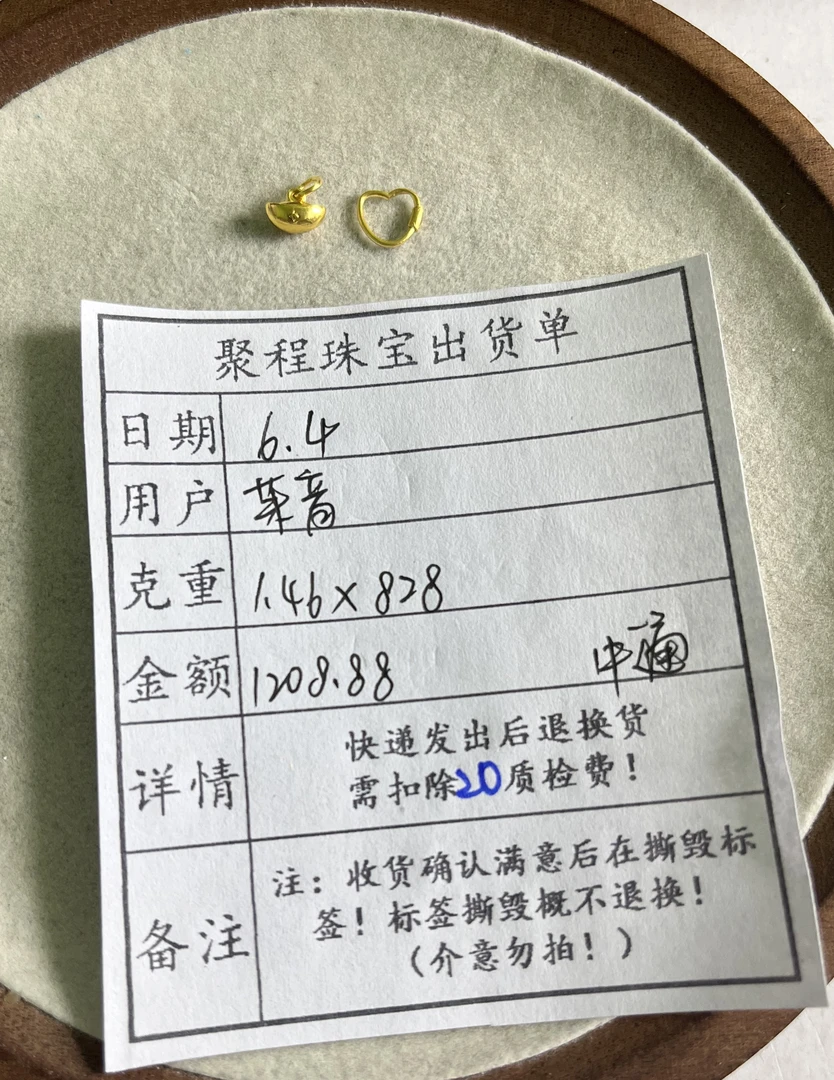 聚程珠宝出货单
日期 6.4
用户 菜音
克重 1.46×828
金额 1208.88 中通
详情 快递发出后退换货
需扣除20质检费！
备注 注：收货确认满意后在撕毁标
签！标签撕毁概不退换！
（介意勿拍！）